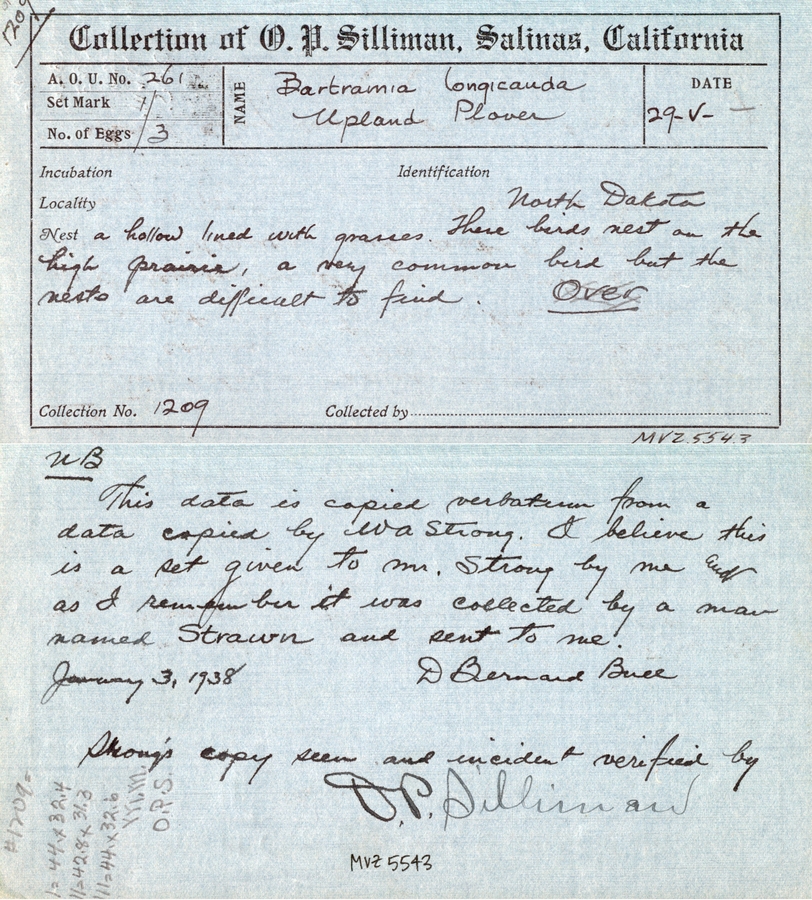 1209
Collection of O. P. Silliman, Salinas, California
A. O. U. No. 261
Set Mark 1/
No. of Eggs 3
NAME
Bartramia longicauda
Upland Plover
DATE
29-V-
Incubation
Identification
Locality North Dakota
Nest a hollow lined with grasses. These birds nest on the
high prairie, a very common bird but the
nests are difficult to find. Over
Collection No. 1209
Collected by
MVZ 5543
NB
This data is copied verbatum from a
data copied by WA Strong. I believe this
is a set given to Mr. Strong by me and
as I remember it was collected by a man
named Strawn and sent to me.
January 3, 1938
D Bernard Bull
Strong's copy seen and incident verified by
O.P. Silliman
#1209-
1= 44 x 32.4
11= 42.8 x 31.3
111= 44 x 32.6
O.P.S.
MVZ 5543